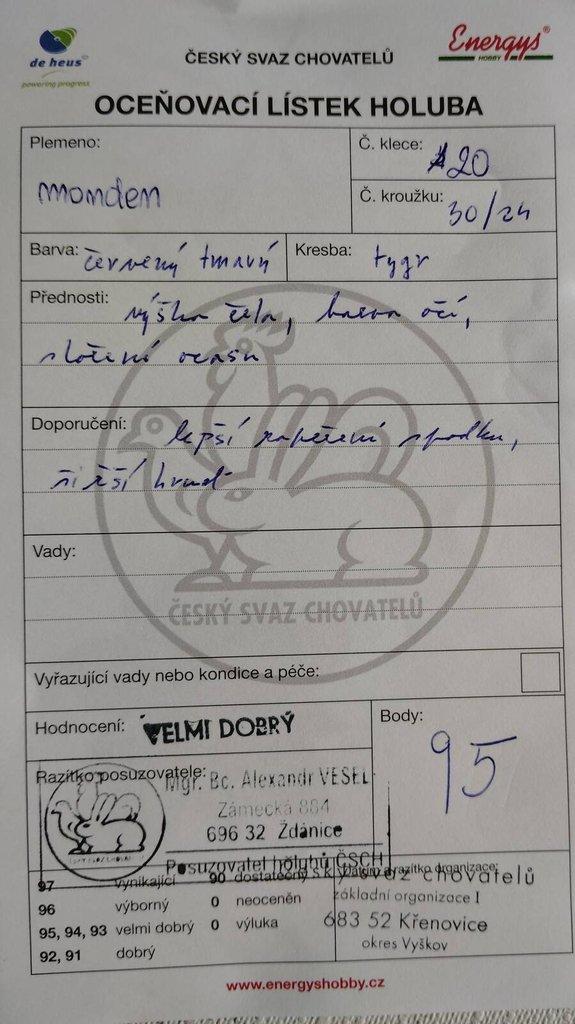 de heus
powering progress
ČESKÝ SVAZ CHOVATELŮ
Energys®
HOBBY
OCEŇOVACÍ LÍSTEK HOLUBA
Plemeno:
monden
Č. klece: 20
Č. kroužku: 30/24
Barva: červený tmavý
Kresba: tygr
Přednosti: výška čela, barva očí,
složení ocasu
Doporučení: lepší zapeření spodku,
širší hruď
Vady:
ČESKÝ SVAZ CHOVATELŮ
Vyřazující vady nebo kondice a péče:
Hodnocení: VELMI DOBRÝ
Body:
95
Razítko posuzovatele:
Mgr. Bc. Alexandr VESEL
Zámecká 884
696 32 Ždánice
Posuzovatel holubů ČSCH
Datum a razítko organizace:
97 vynikající 90 dostatečný
96 výborný 0 neoceněn
95, 94, 93 velmi dobrý 0 výluka
92, 91 dobrý
svaz chovatelů
základní organizace I
683 52 Křenovice
okres Vyškov
www.energyshobby.cz